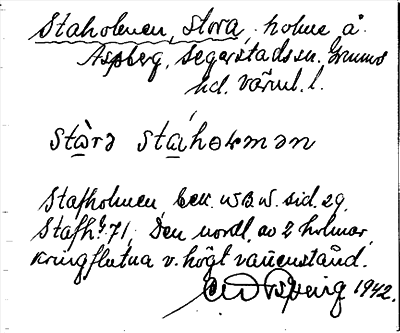 Staholmen, Stora, holme å
Aspberg, Segerstads sn. Grums
hd. Värml. l.
stàrə stáhoɫmən
Stafholmen beck. W.B.W. sid. 29.
Stafh. 71. Den nordl. av 2 holmar,
kringflutna v. högt vattenstånd.
1942.